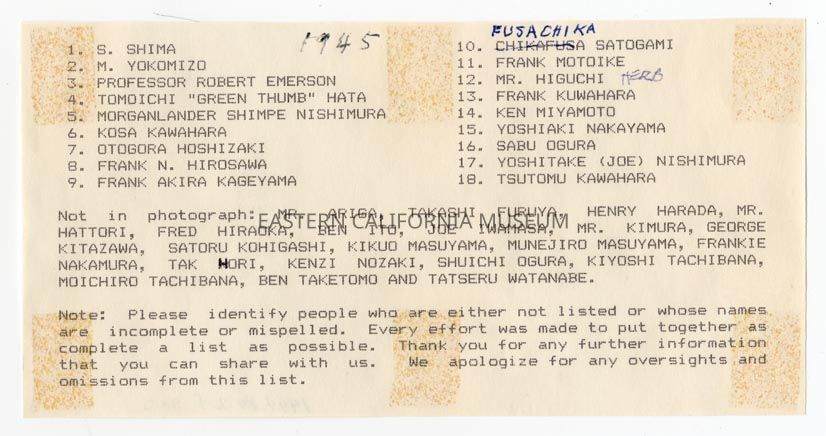 1945
1. S. SHIMA
2. M. YOKOMIZO
3. PROFESSOR ROBERT EMERSON
4. TOMOICHI "GREEN THUMB" HATA
5. MORGANLANDER SHIMPE NISHIMURA
6. KOSA KAWAHARA
7. OTOGORA HOSHIZAKI
8. FRANK N. HIROSAWA
9. FRANK AKIRA KAGEYAMA
FUSACHIKA
10. CHIKAFUSA SATOGAMI
11. FRANK MOTOIKE
12. MR. HIGUCHI HERB
13. FRANK KUWAHARA
14. KEN MIYAMOTO
15. YOSHIAKI NAKAYAMA
16. SABU OGURA
17. YOSHITAKE (JOE) NISHIMURA
18. TSUTOMU KAWAHARA
Not in photograph: MR. ARIGA, TAKASHI FURUYA, HENRY HARADA, MR.
EASTERN CALIFORNIA MUSEUM
HATTORI, FRED HIRAOKA, BEN ITO, JOE IWAMASA, MR. KIMURA, GEORGE
KITAZAWA, SATORU KOHIGASHI, KIKUO MASUYAMA, MUNEJIRO MASUYAMA, FRANKIE
NAKAMURA, TAK HORI, KENZI NOZAKI, SHUICHI OGURA, KIYOSHI TACHIBANA,
MOICHIRO TACHIBANA, BEN TAKETOMO AND TATSERU WATANABE.
Note: Please identify people who are either not listed or whose names
are incomplete or mispelled. Every effort was made to put together as
complete a list as possible. Thank you for any further information
that you can share with us. We apologize for any oversights and
omissions from this list.